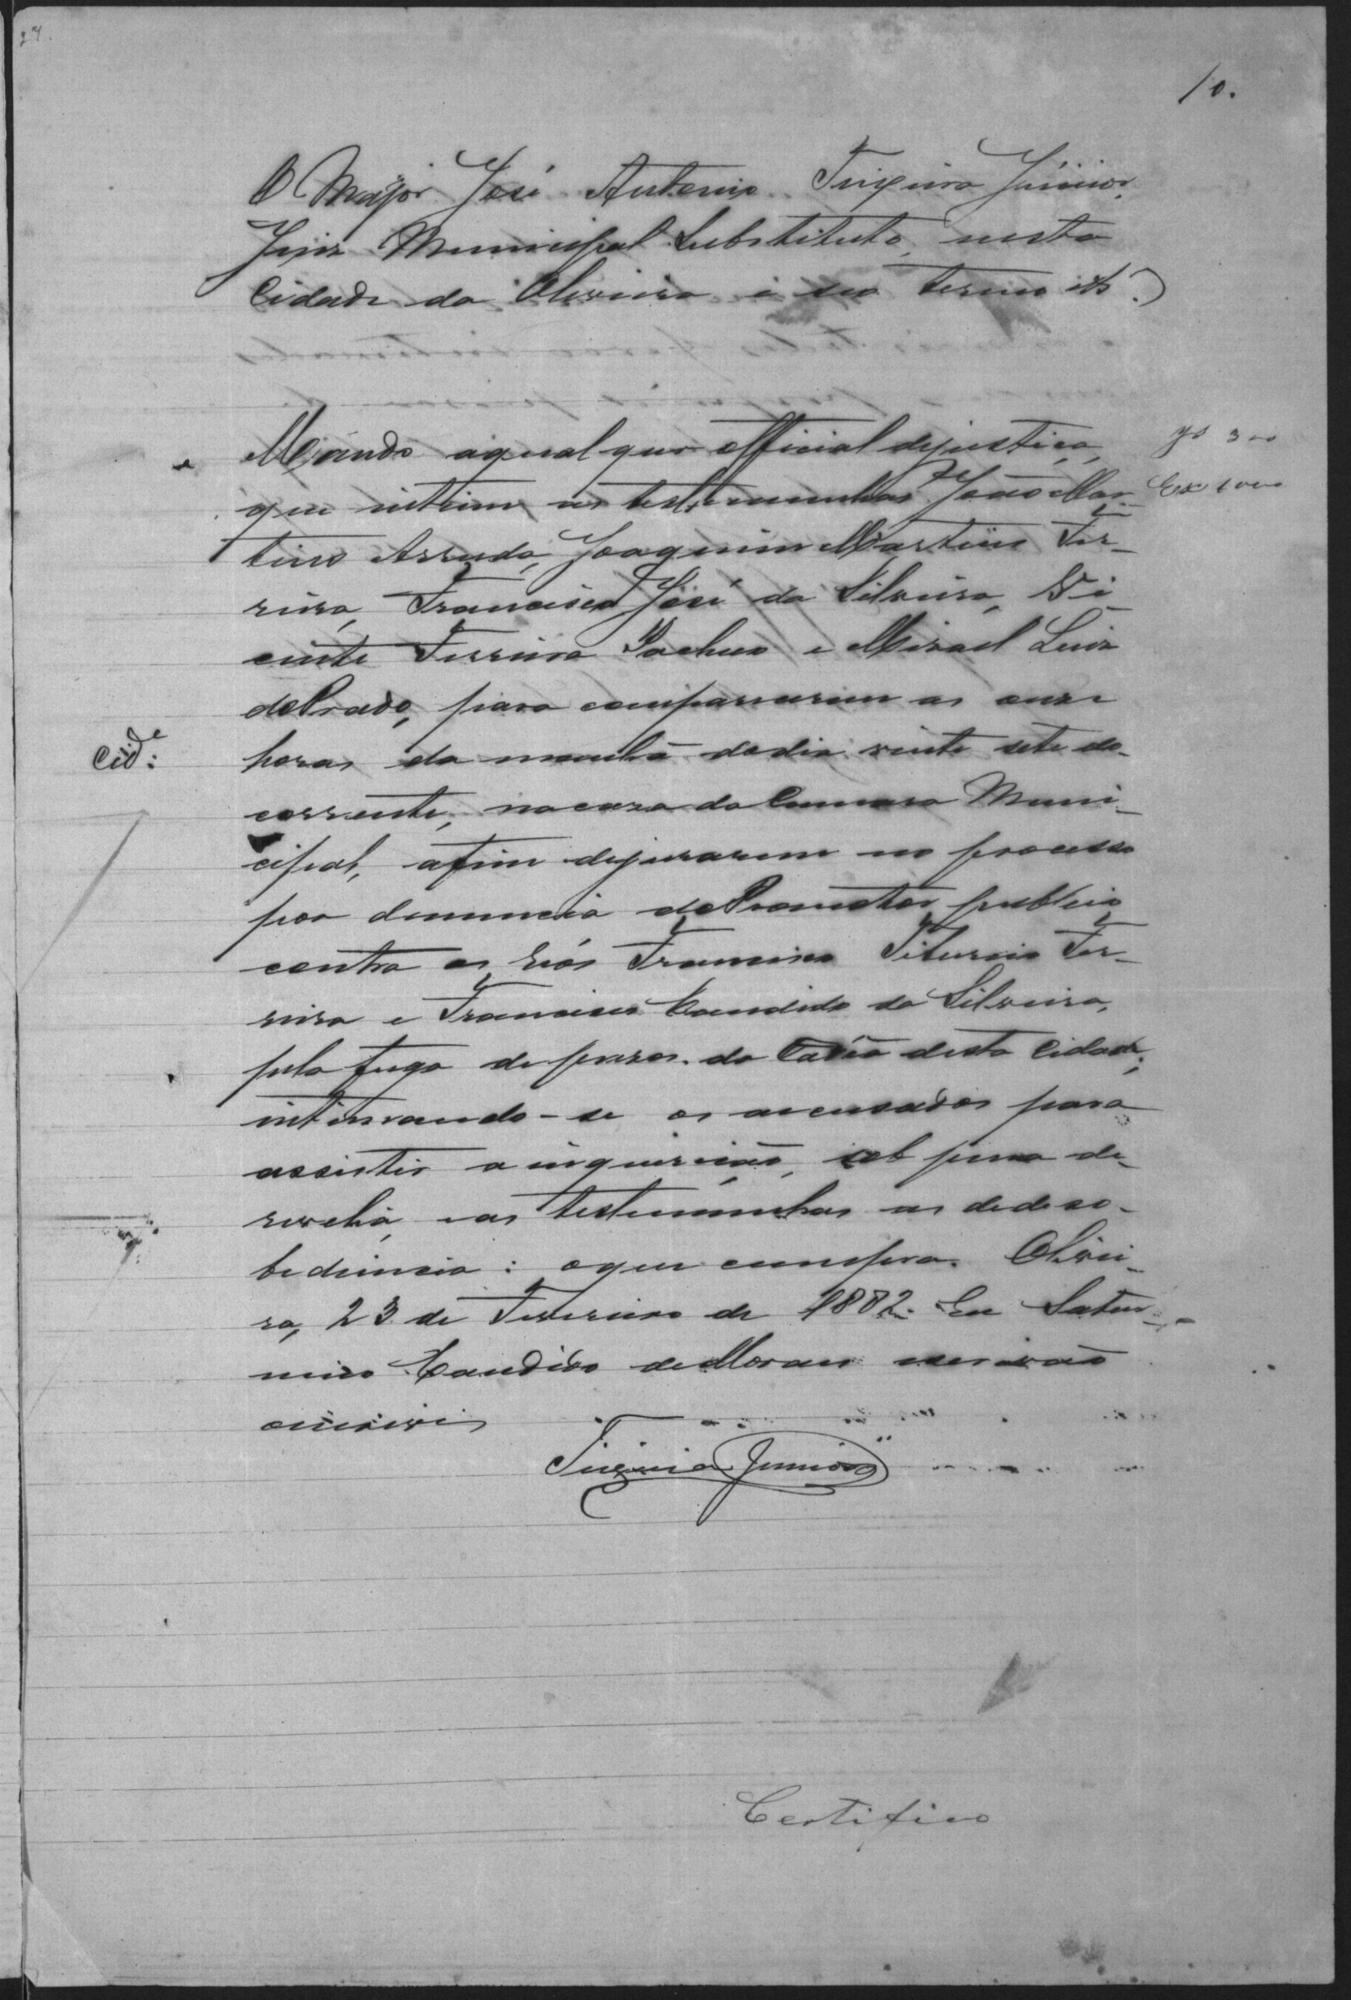 10.
O Major José Antonio Teixeira Júnior,
Juiz Municipal Substituto, nesta
Cidade da Oliveira e seo termo etc.
Mando aqualquer official dejustiça,
que intime as testemunhas João Mar-
tins Arruda, Joaquim Martins Fer-
reira, Francisco José da Silveira, Vi
cente Ferreira Pacheco e Misael Luiz
doPrado, para comparecerem as onze
horas da manhã dodia vinte sete do
corrente, nacaza da Camara Muni-
cipal, afim dejurarem no processo
por denuncia doPromotor publico
contra os réos Francisco Titurcio Fer-
reira e Francisco Candido da Silveira,
pela fuga de prezos da Cadêa desta Cidade,
intimando-se os accusados para
assistir a inquirição, sob pena de
revelia, eas testemunhas as dedeso-
bediencia: oque cumpra. Olivei-
ra, 23 de Fevereiro de 1882. Eu Satur-
nino Candido deMoraes escrivão
oescrevi
Teixeira Junior
Cid.e
Certifico